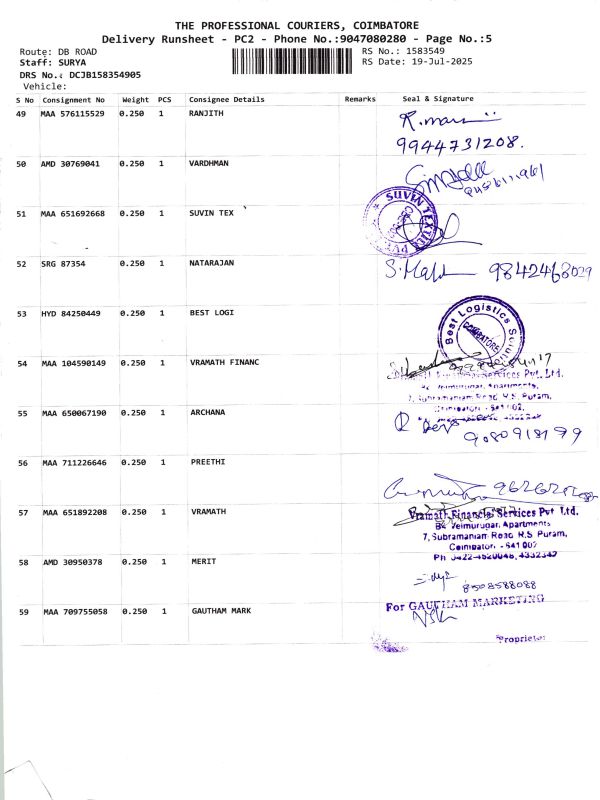 THE PROFESSIONAL COURIERS, COIMBATORE
Delivery Runsheet - PC2 - Phone No.:9047080280 - Page No.:5
Route: DB ROAD
RS No.: 1583549
Staff: SURYA
RS Date: 19-Jul-2025
DRS No.: DCJB158354905
Vehicle:
S No Consignment No Weight PCS Consignee Details Remarks Seal & Signature
49 MAA 576115529 0.250 1 RANJITH
9944731208.
50 AMD 30769041 0.250 1 VARDHMAN
51 MAA 651692668 0.250 1 SUVIN TEX
SUVIN TEXTILES PVT
52 SRG 87354 0.250 1 NATARAJAN
9842468029
53 HYD 84250449 0.250 1 BEST LOGI
Best Logistics Solutions
COIMBATORE
54 MAA 104590149 0.250 1 VRAMATH FINANC
Services Pvt. Ltd.
Apartments,
7, Subramaniam Road R.S. Puram,
Coimbatore - 641 002.
55 MAA 650067190 0.250 1 ARCHANA
9080918199
56 MAA 711226646 0.250 1 PREETHI
57 MAA 651892208 0.250 1 VRAMATH
Vramath Financial Services Pvt Ltd.
Velmurugan Apartments
7, Subramaniam Road R.S. Puram,
Coimbatore - 641 002
Ph 0422-4520048, 4332347
58 AMD 30950378 0.250 1 MERIT
8508588088
59 MAA 709755058 0.250 1 GAUTHAM MARK
For GAUTHAM MARKETING
Proprietor